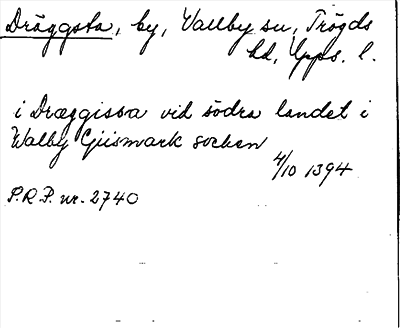 Dräggsta, by, Vallby sn, Trögds
hd, Upps. l.
i Dræggissa vid södra landet i
Walby Giismark sochen
4/10 1394
P.R.P. nr. 2740